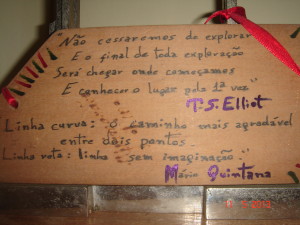 "Não cessaremos de explorar
E o final de toda exploração
Será chegar onde começamos
E conhecer o lugar pela 1ª vez"
T.S. Elliot
Linha curva: o caminho mais agradável
entre dois pontos.
Linha reta: linha sem imaginação."
Mário Quintana